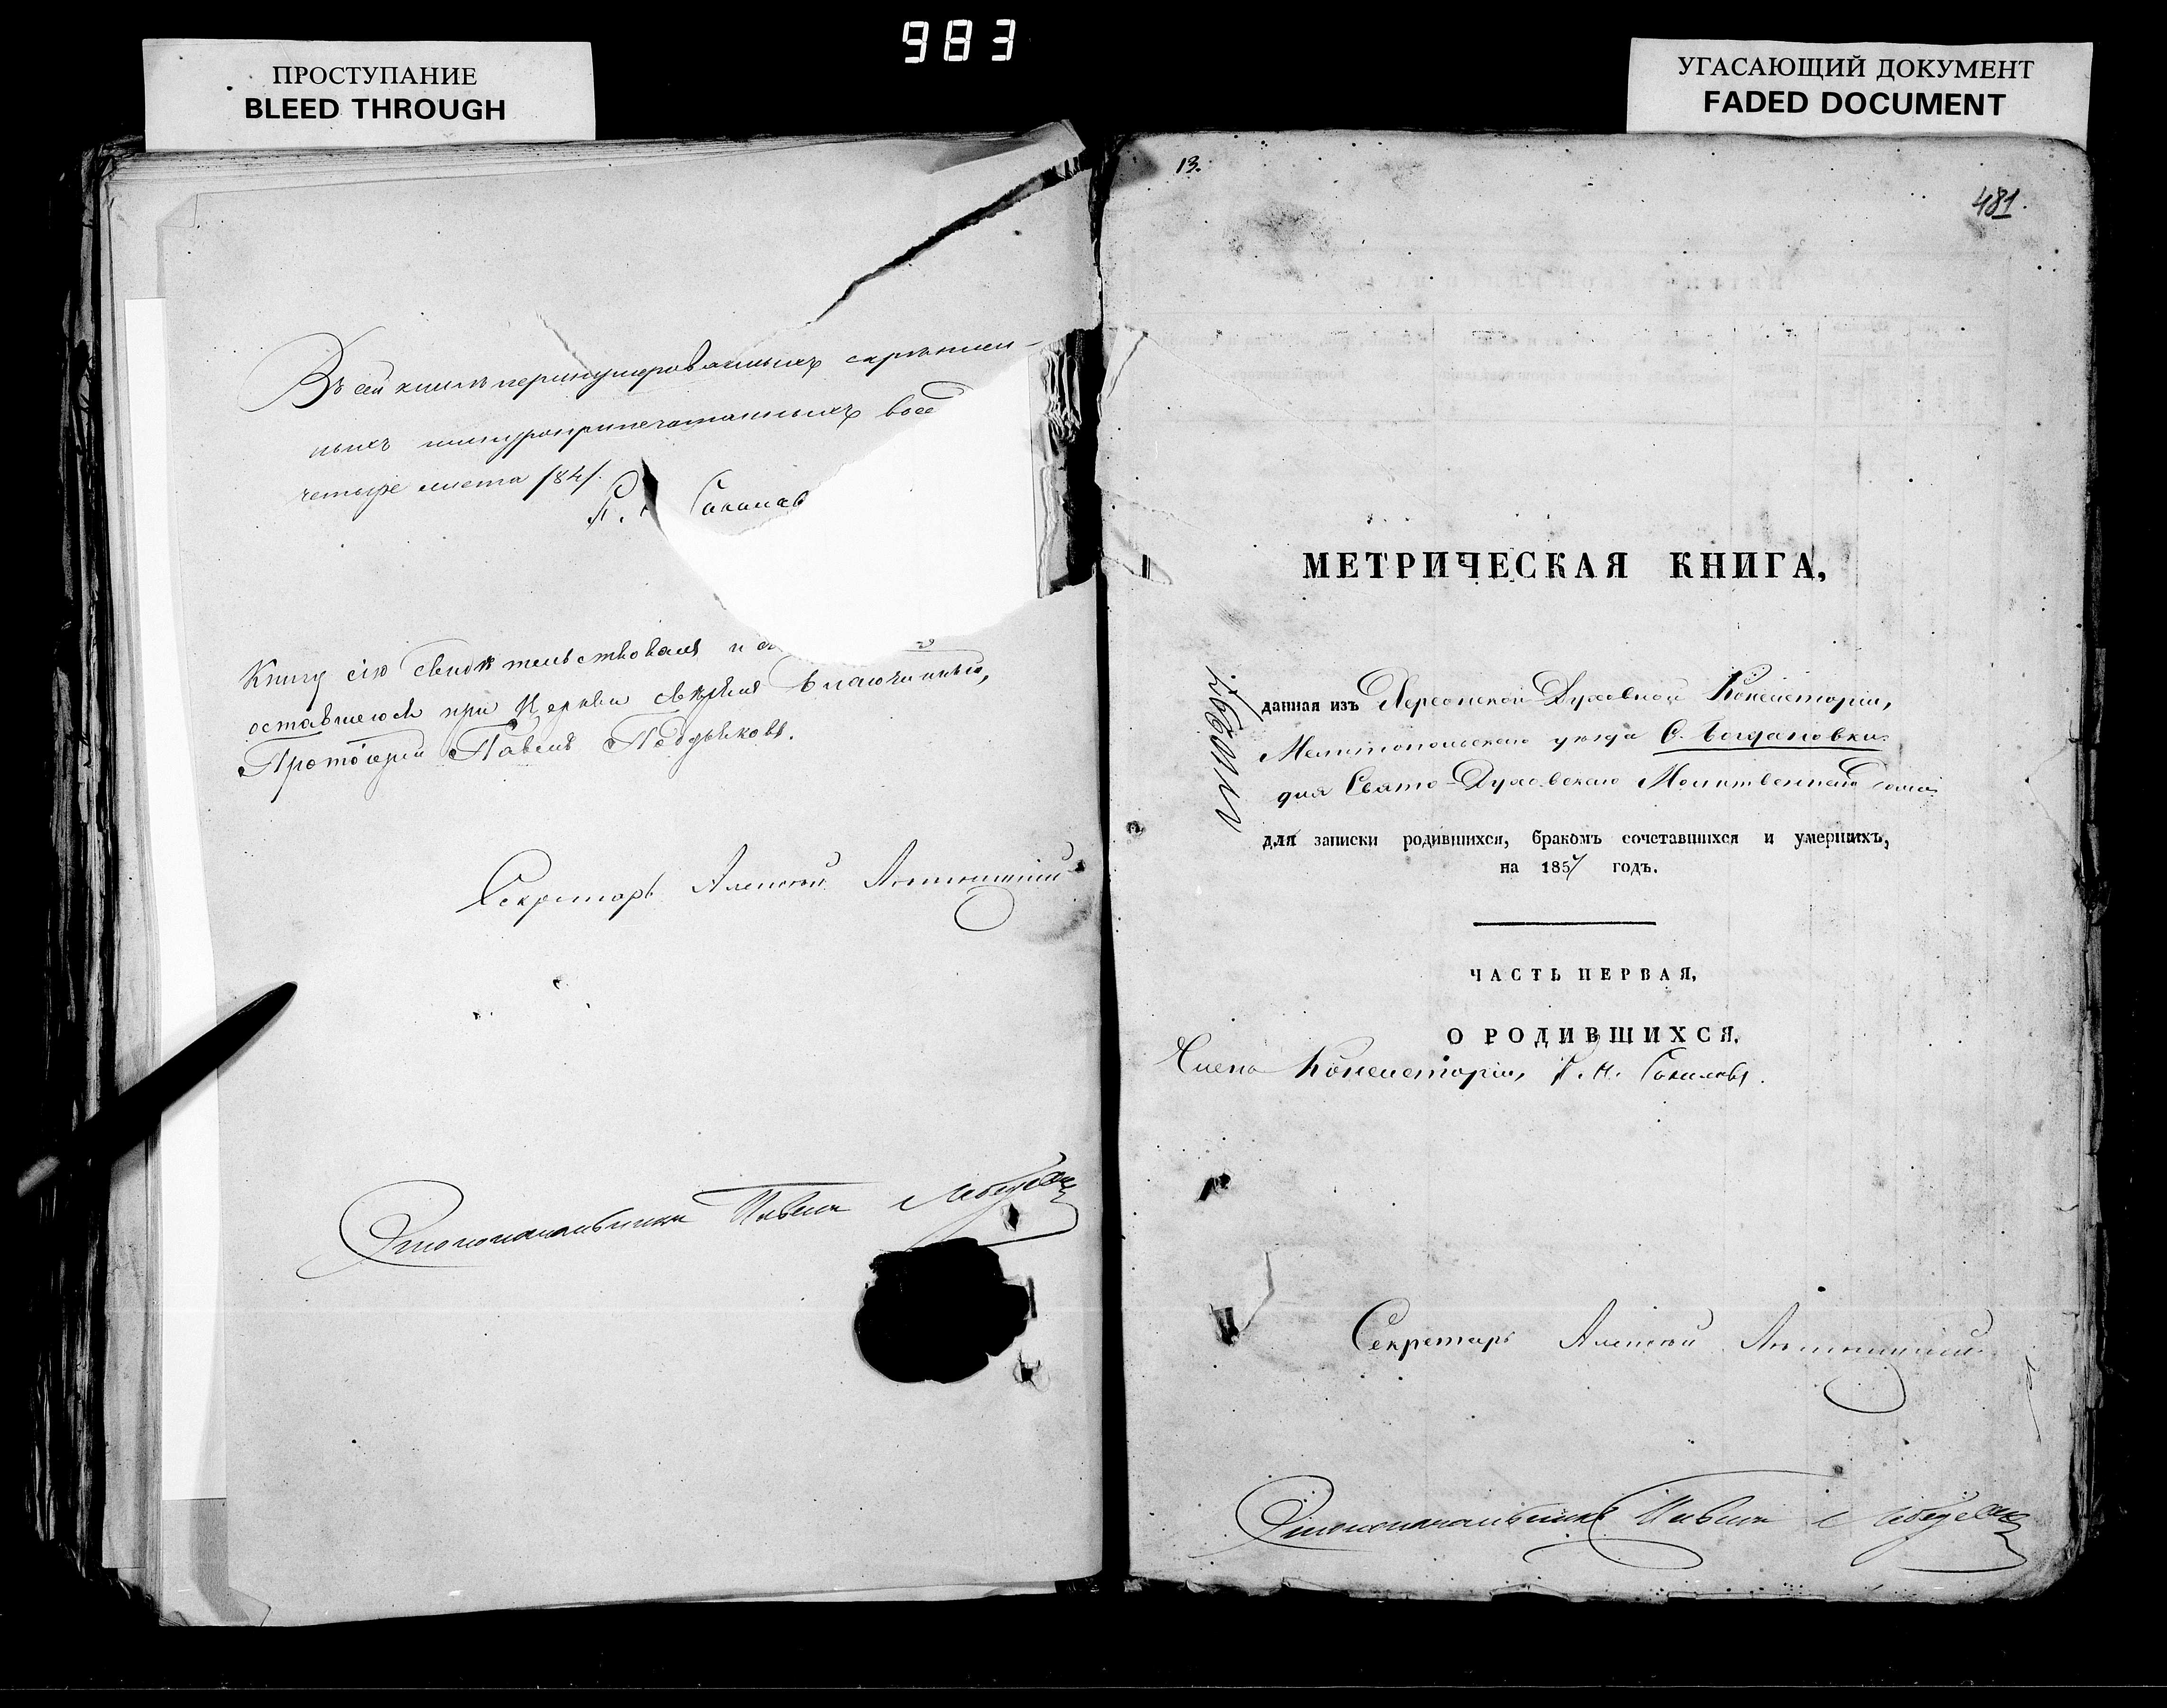 983
ПРОСТУПАНИЕ
BLEED THROUGH
УГАСАЮЩИЙ ДОКУМЕНТ
FADED DOCUMENT
Въ сей книгѣ перенумерованныхъ скрѣплен-
ныхъ шнуроприпечатанныхъ восе
четыре листа /84/.
Соколов
Книгу сію свидѣтельствовалъ и
оставшеюся при Церкви свѣрялъ Благочинный,
Протоіерей Павелъ
Секретарь Алексѣй
Столоначальникъ Павелъ Лебедевъ
13.
481.
МЕТРИЧЕСКАЯ КНИГА,
данная изъ Херсонской Духовной Консисторіи,
Мелитопольскаго уѣзда С. Богдановки
для Свято-Духовскаго Молитвеннаго дома
для записки родившихся, бракомъ сочетавшихся и умершихъ,
на 1857 годъ.
ЧАСТЬ ПЕРВАЯ,
О РОДИВШИХСЯ.
Члена Консисторіи, Соколовъ.
Секретарь Алексѣй
Столоначальникъ Павелъ Лебедевъ